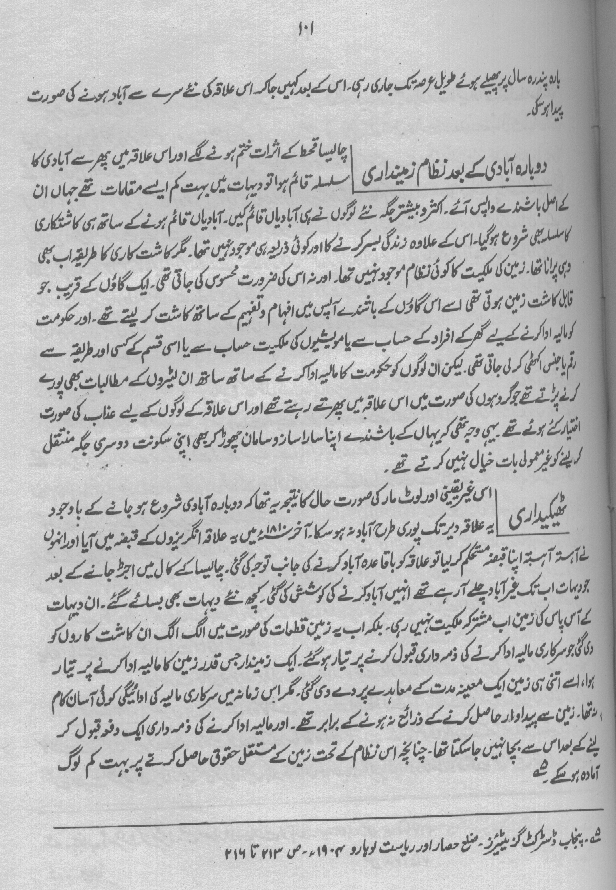 ۱۰۱
بارہ پندرہ سال پر پھیلے ہوئے طویل عرصہ تک جاری رہی۔ اس کے بعد کہیں جا کر اس علاقہ کی نئے سرے سے آباد ہونے کی صورت
پیدا ہو سکی۔
دوبارہ آبادی کے بعد نظام زمینداری
چالیسا قحط کے اثرات ختم ہونے لگے اور اس علاقہ میں پھر سے آبادی کا
سلسلہ قائم ہوا تو دیہات میں بہت کم ایسے مقامات تھے جہاں ان
کے اصل باشندے واپس آئے۔ اکثر و بیشتر جگہ نئے لوگوں نے ہی آبادیاں قائم کیں۔ آبادیاں قائم ہونے کے ساتھ ہی کاشتکاری
کا سلسلہ بھی شروع ہو گیا۔ اس کے علاوہ زندگی بسر کرنے کا اور کوئی ذریعہ ہی موجود نہیں تھا۔ مگر کاشت کاری کا طریقہ اب بھی
وہی پرانا تھا۔ زمین کی ملکیت کا کوئی نظام موجود نہیں تھا۔ اور نہ اس کی ضرورت محسوس کی جاتی تھی۔ ایک گاؤں کے قریب جو
قابل کاشت زمین ہوتی تھی اسے اس گاؤں کے باشندے آپس میں افہام و تفہیم کے ساتھ کاشت کر لیتے تھے۔ اور حکومت
کو مالیہ ادا کرنے کے لیے گھر کے افراد کے حساب سے یا مویشیوں کی ملکیت حساب سے یا اسی قسم کے کسی اور طریقہ سے
رقم یا جنس اکٹھی کر لی جاتی تھی۔ لیکن ان لوگوں کو حکومت کا مالیہ ادا کرنے کے ساتھ ساتھ ان لٹیروں کے مطالبات بھی پورے
کرنے پڑتے تھے جو گروہوں کی صورت میں اس علاقہ میں پھرتے رہتے تھے اور اس علاقہ کے لوگوں کے لیے عذاب کی صورت
اختیار کئے ہوئے تھے۔ یہی وجہ تھی کہ یہاں کے باشندے اپنا سارا ساز و سامان چھوڑ کر بھی اپنی سکونت دوسری جگہ منتقل
کر لینے کو غیر معمولی بات خیال نہیں کرتے تھے۔
ٹھیکیداری
اس غیر یقینی اور لوٹ مار کی صورت حال کا نتیجہ یہ تھا کہ دوبارہ آبادی شروع ہو جانے کے باوجود
یہ علاقہ دیر تک پوری طرح آباد نہ ہو سکا۔ آخر ۱۸۱۰ء میں یہ علاقہ انگریزوں کے قبضہ میں آیا اور انہوں
نے آہستہ آہستہ اپنا قبضہ مستحکم کر لیا تو علاقہ کو باقاعدہ آباد کرنے کی جانب توجہ کی گئی۔ چالیسا کے کال میں اجڑ جانے کے بعد
جو دیہات اب تک غیر آباد چلے آ رہے تھے انہیں آباد کرنے کی کوشش کی گئی۔ کچھ نئے دیہات بھی بسائے گئے۔ ان دیہات
کے آس پاس کی زمین اب مشترکہ ملکیت نہیں رہی۔ بلکہ اب یہ زمین قطعات کی صورت میں الگ الگ ان کاشت کاروں کو
دی گئی جو سرکاری مالیہ ادا کرنے کی ذمہ داری قبول کرنے پر تیار ہو گئے۔ ایک زمیندار جس قدر زمین کا مالیہ ادا کرنے پر تیار
ہوا، اسے اتنی ہی زمین ایک معینہ مدت کے معاہدے پر دے دی گئی۔ مگر اس زمانہ میں سرکاری مالیہ کی ادائیگی کوئی آسان کام
نہ تھا۔ زمین سے پیداوار حاصل کرنے کے ذرائع نہ ہونے کے برابر تھے۔ اور مالیہ ادا کرنے کی ذمہ داری ایک دفعہ قبول کر
لینے کے بعد اس سے بچا نہیں جا سکتا تھا۔ چنانچہ اس نظام کے تحت زمین کے مستقل حقوق حاصل کرنے پر بہت کم لوگ
آمادہ ہو سکے۔
پنجاب ڈسٹرکٹ گزیٹیئرز۔ ضلع حصار اور ریاست لوہارو ۱۹۰۴ء۔ ص ۲۱۳ تا ۲۱۶